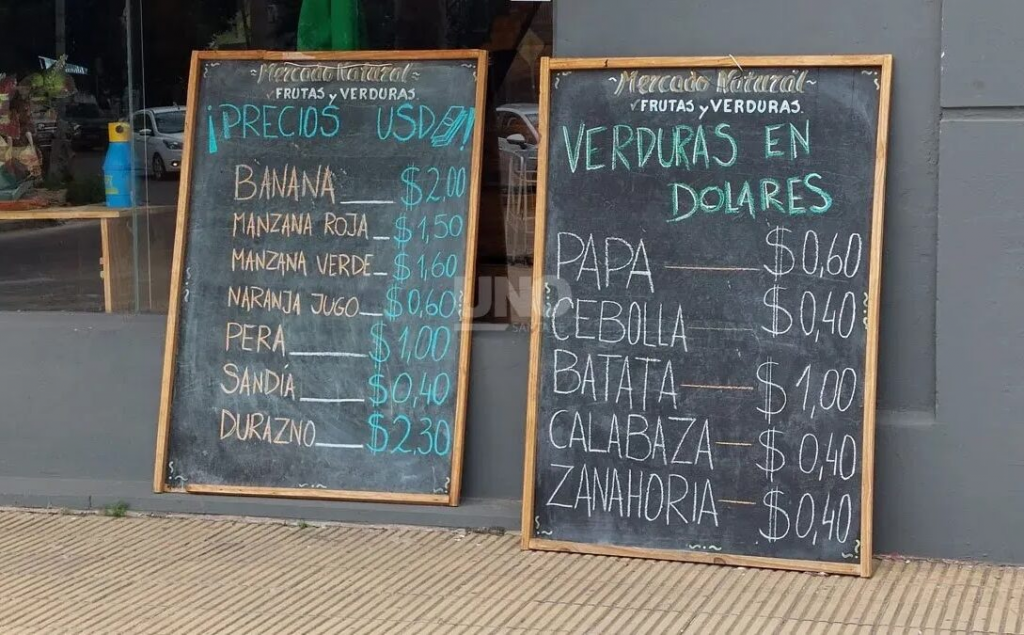 Mercado Natural
FRUTAS y VERDURAS.
¡PRECIOS USD!
BANANA $2.00
MANZANA ROJA $1,50
MANZANA VERDE $1,60
NARANJA JUGO $0,60
PERA $1,00
SANDÍA $0,40
DURAZNO $2,30
Mercado Natural
FRUTAS y VERDURAS.
VERDURAS EN
DOLARES
PAPA $0,60
CEBOLLA $0,40
BATATA $1,00
CALABAZA $0,40
ZANAHORIA $0,40
UNO